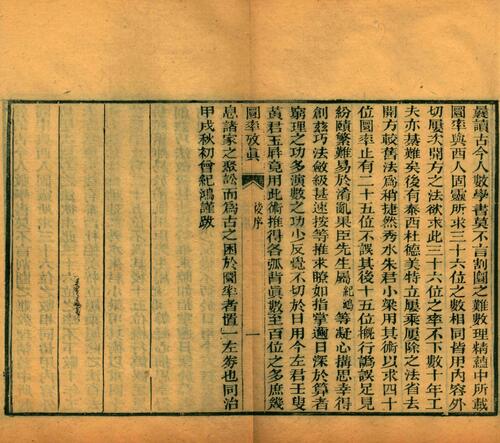 曩讀古今人數學書莫不言割圜之難數理精蘊中所載
圜率與西人固靈所求三十六位之數相同皆用內容外
切屢次開方之法欲求此三十六位之率不下數十年工
夫亦綦難矣後有泰西杜德美特立屢乘屢除之法省去
開方較舊法爲稍捷然秀水朱君小梁用其術以求四十
位圜率止有二十五位不誤其後十五位概行譌誤足見
紛賾繁難易於淆亂果臣先生屬紀鴻等凝心搆思幸得
創茲巧法斂級甚速按等推求瞭如指掌邇日深於算者
窮理之功多演數之功少反覺不切於日用今左君壬叟
黃君玉屛竟用此術推得各弧背眞數至百位之多庶幾
圜率攷眞
後序
一
息諸家之聚訟而爲古之困於圜率者置一左劵也同治
甲戌秋初曾紀鴻謹跋